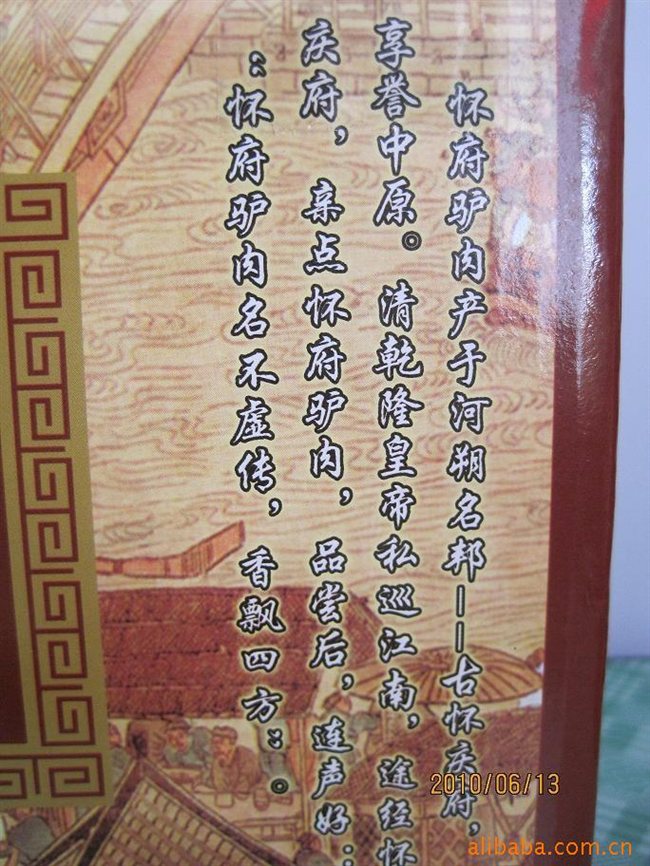 怀府驴肉产于河朔名邦——古怀庆府，
享誉中原。清乾隆皇帝私巡江南，途经怀
庆府，亲点怀府驴肉，品尝后，连声好：
“怀府驴肉名不虚传，香飘四方”。
2010/06/13
alibaba.com.cn